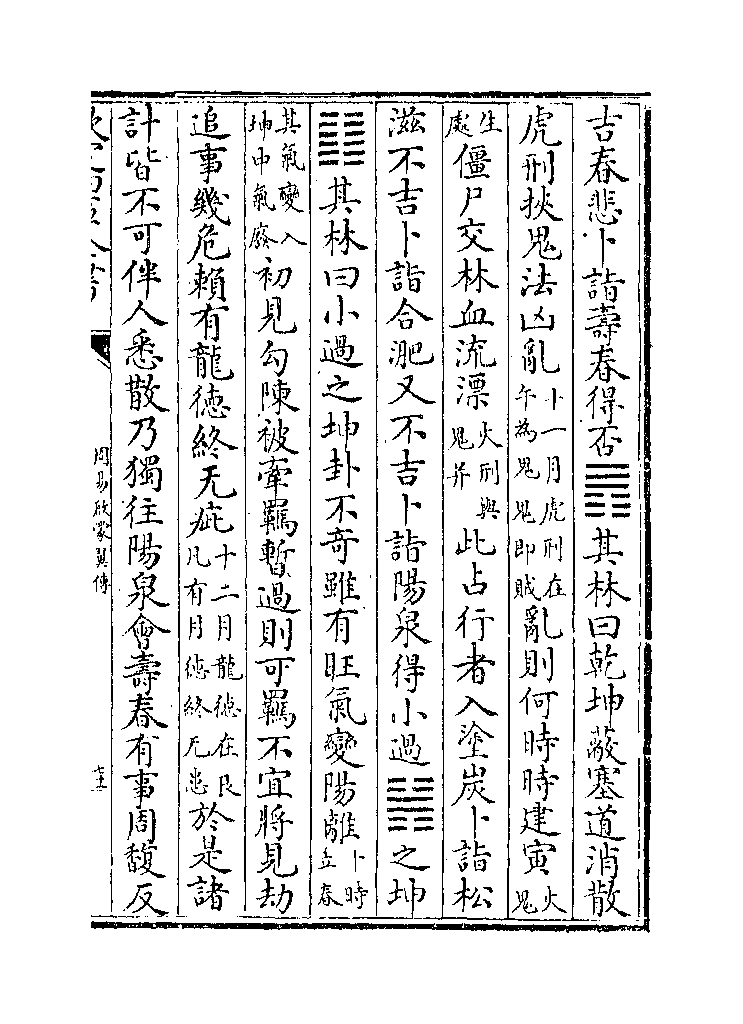 吉春悲卜詣壽春得否䷋其林曰乾坤蔽塞道消散
虎刑挾鬼法凶亂十一月虎刑在午為鬼鬼即賊亂則何時時建寅火鬼
生處僵尸交林血流漂火刑與鬼并此占行者入塗炭卜詣松
滋不吉卜詣合淝又不吉卜詣陽泉得小過䷽之坤
䷁其林曰小過之坤卦不奇雖有旺氣變陽離卜時立春
其氣變入坤中氣廢初見勾陳被牽羈暫過則可羈不宜將見劫
追事幾危賴有龍德終无疵十二月龍德在艮凡有月德終无患於是諸
計皆不可伴人悉散乃獨往陽泉會壽春有事周馥反
周易啟蒙翼傳